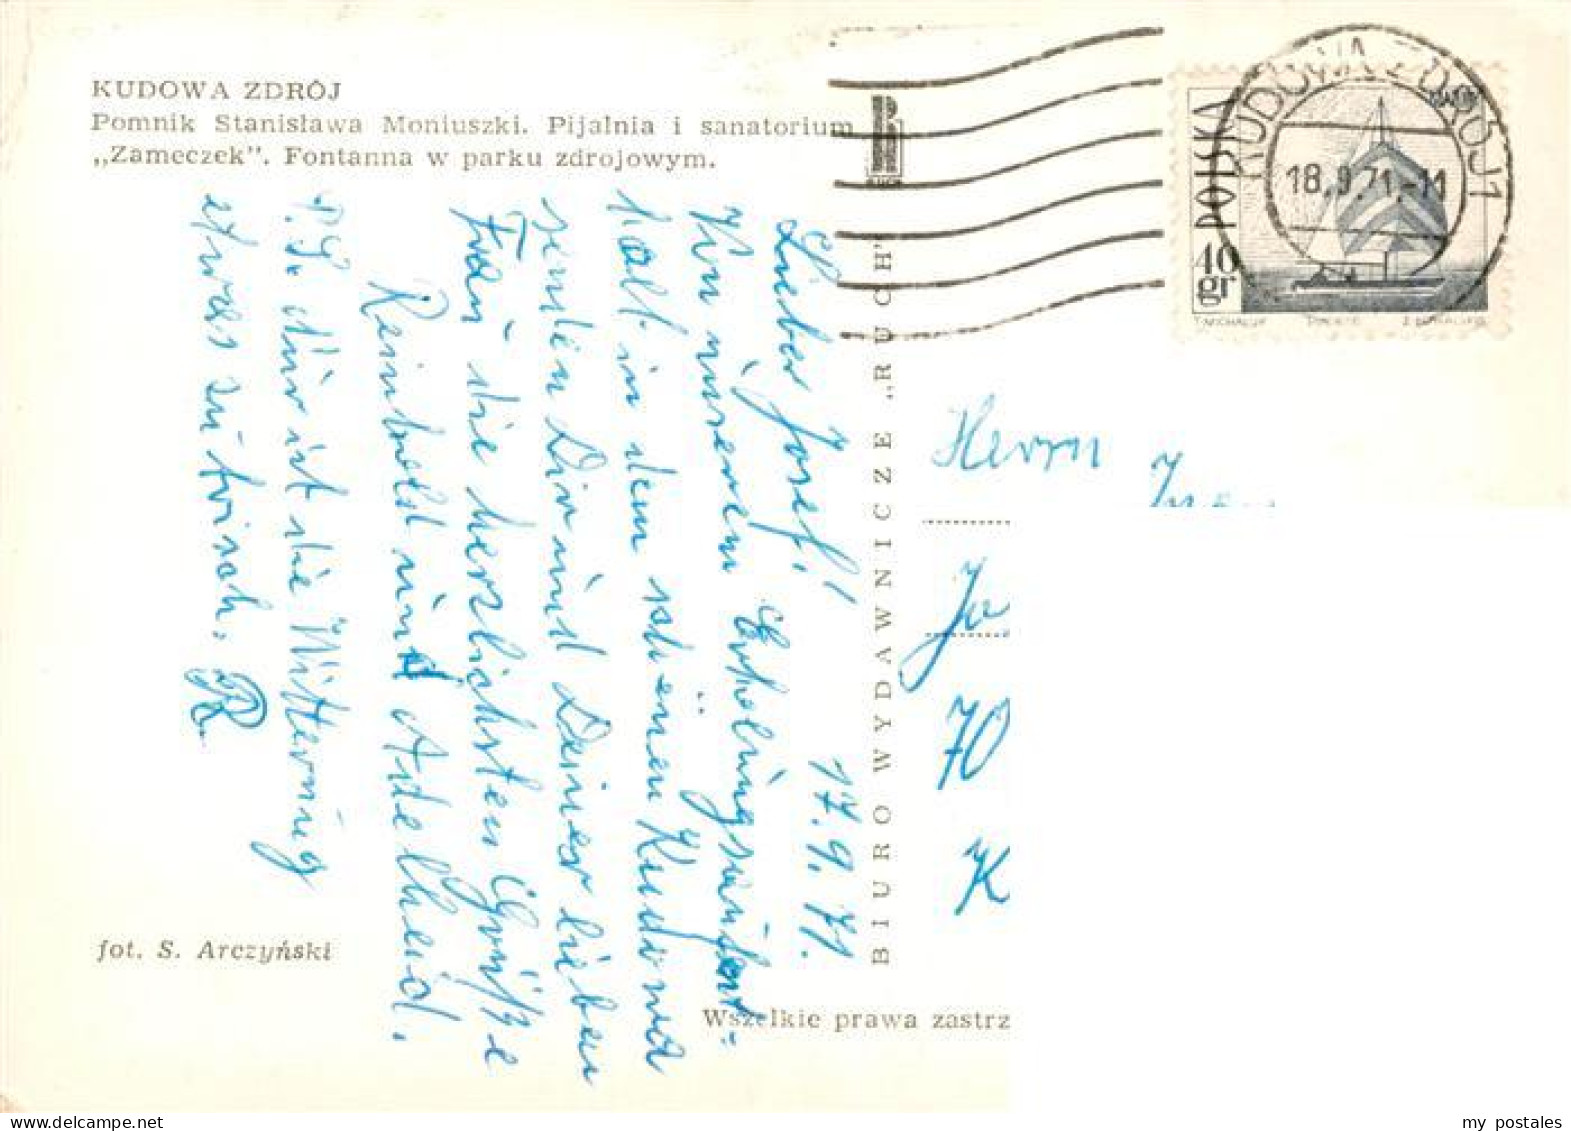 KUDOWA ZDRÓJ
Pomnik Stanisława Moniuszki. Pijalnia i sanatorium
„Zameczek". Fontanna w parku zdrojowym.
RUCH
POLSKA
40
gr
KUDOWA ZDRÓJ 1
18.9.71.-11
17.9.71.
Lieber Josef!
Von unserem Erholungsaufent-
halt in dem schönen Kudowa
senden Dir und Deiner lieben
Frau die herzlichsten Grüße
Reinhold und Adelheid.
P.S. Nur ist die Witterung
etwas zu frisch. R
BIURO WYDAWNICZE „RUCH"
Herrn
70
K
fot. S. Arczyński
Wszelkie prawa zastrz
my postales